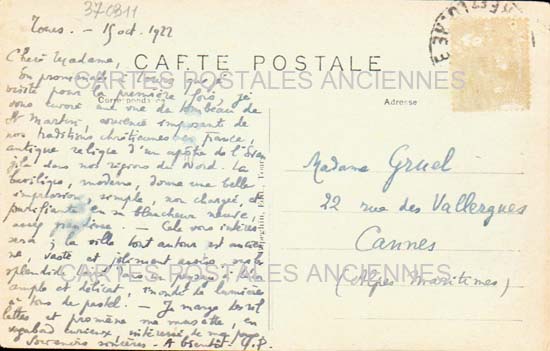 370811
Tours. - 15 oct. 1922
CARTE POSTALE
CARTES POSTALES ANCIENNES
Correspondance
Adresse
Chère Madame,
En promenade à Tours que je
visite pour la première fois, je
vous envoie une vue du tombeau de
St Martin, souvenir imposant de
nos traditions chrétiennes en France,
antique relique d'un apôtre de l'Evan
gile dans nos régions du Nord. La
basilique, moderne, donne une belle
impression, simple, non chargée, et
purifiante en sa blancheur neuve,
- Cela vous intéres
sera ; la ville tout autour est ancien
ne, vaste et joliment assise sur la
splendide
ample et délicat, inondé de lumière
à tons de pastel. - Je mange des ril
lettes et promène ma musette, en
vagabond curieux, intéressé de
Souvenirs sincères. - A bientôt - G.P.
Madame Gruel
22 rue des Vallergues
Cannes
(Alpes Maritimes)
CARTES POSTALES ANCIENNES